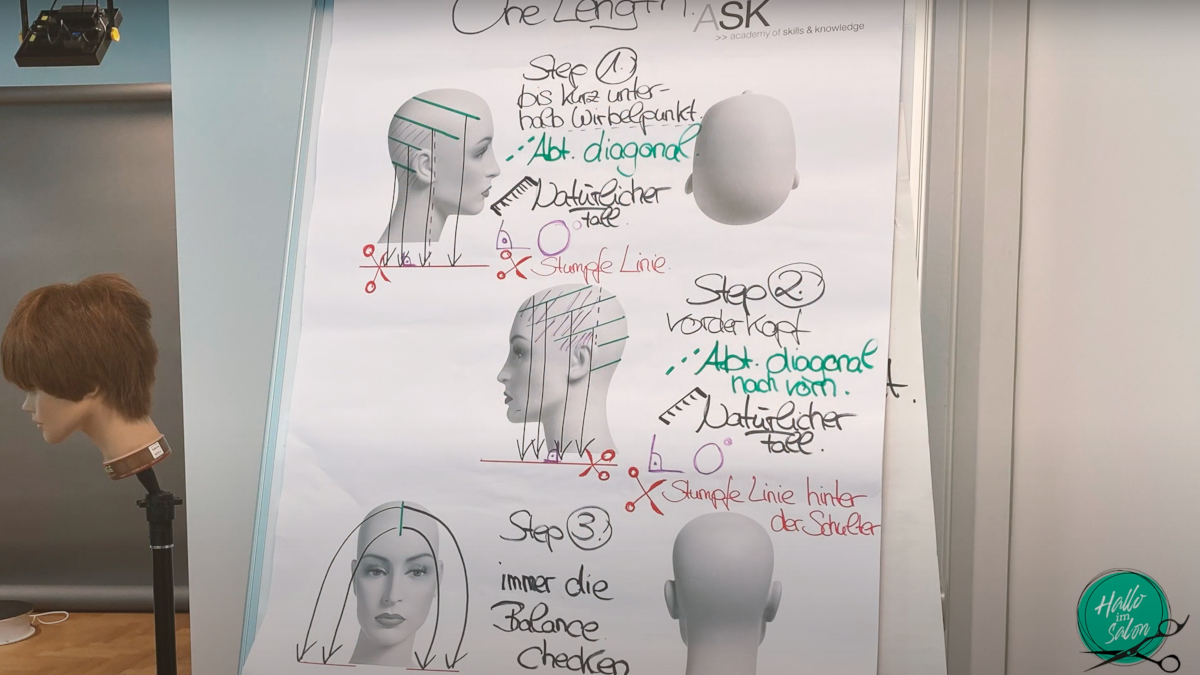 One Length.
ASK
>> academy of skills & knowledge
Step 1.)
bis kurz unter-
halb Wirbelpunkt.
Abt. diagonal
Natürlicher
fall.
0°
Stumpfe Linie.
Step 2.)
Vorderkopf
Abt. diagonal
nach vorn.
Natürlicher
fall.
0°
Stumpfe Linie hinter
der Schulter
Step 3.)
immer die
Balance
checken
Hallo
im
Salon